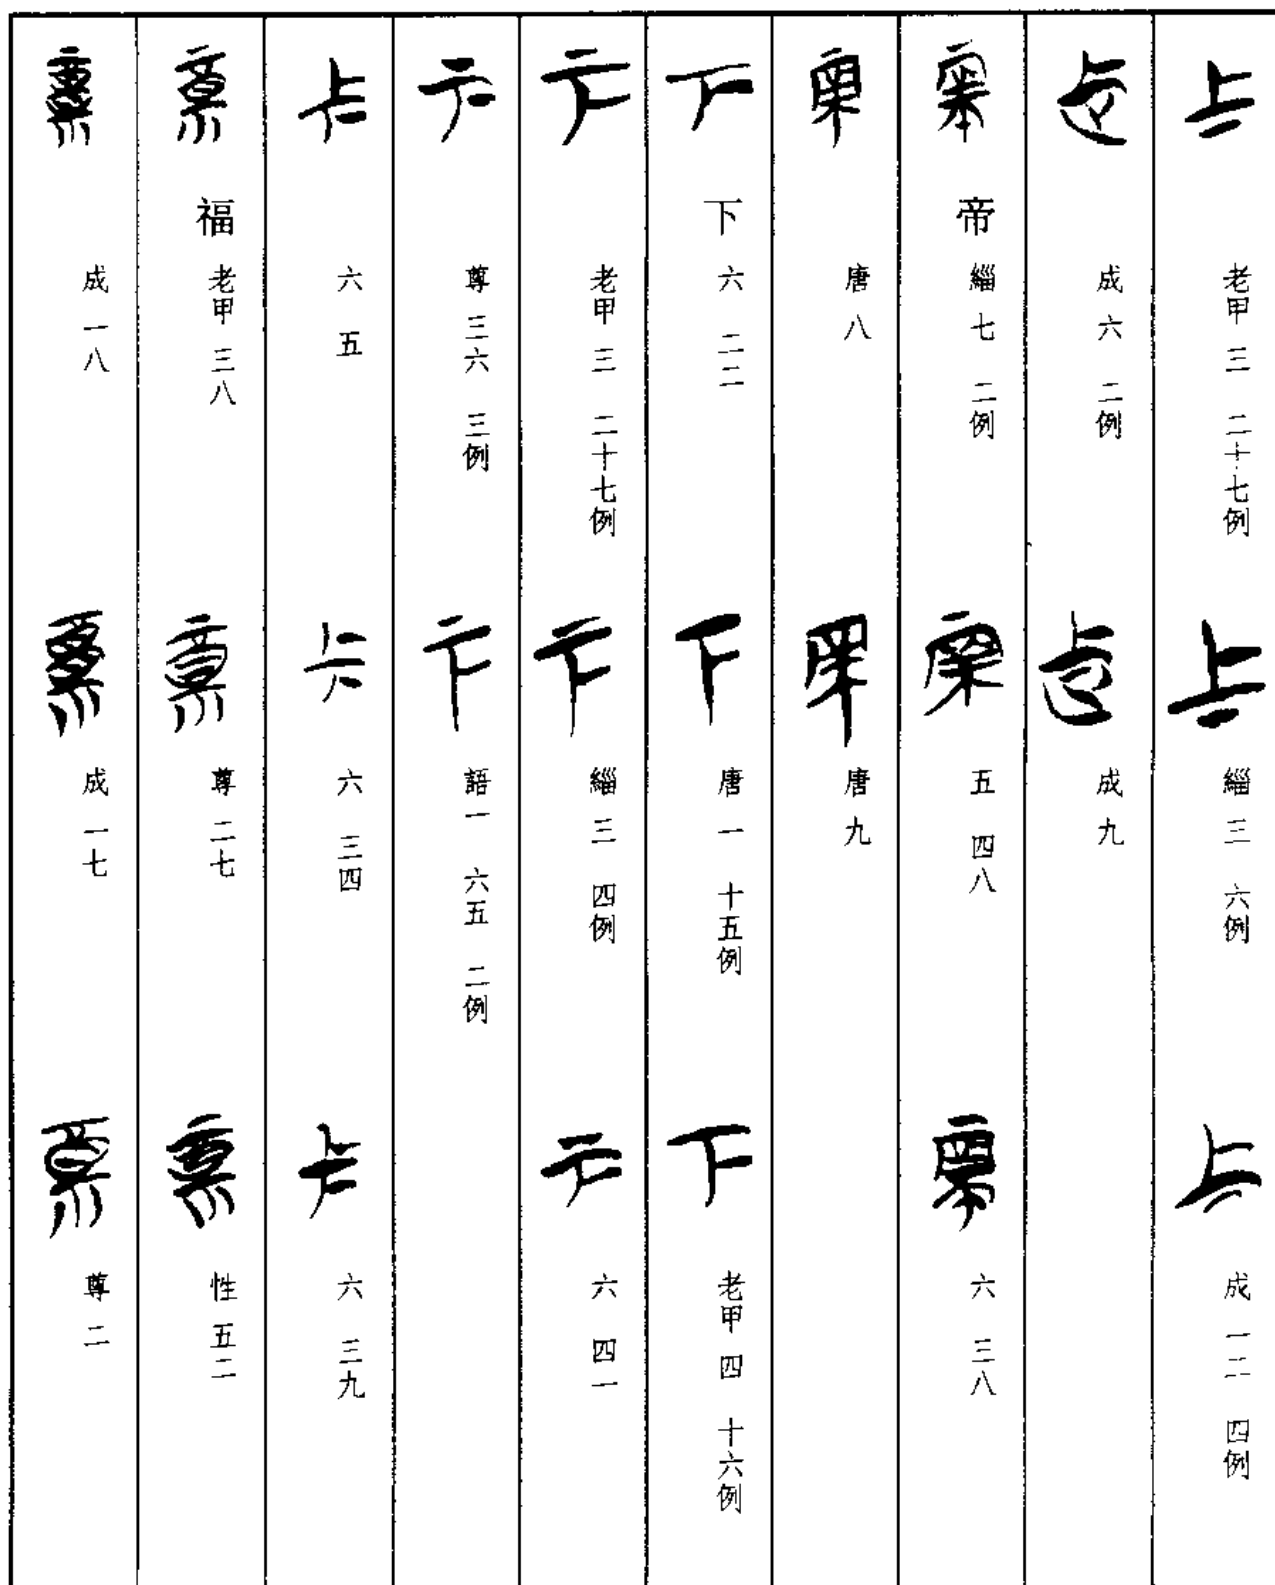 老甲 三 二十七例
緇 三 六例
成 一二 四例
成 六 二例
成 九
帝 緇 七 二例
五 四八
六 三八
唐 八
唐 九
下 六 二二
唐 一 十五例
老甲 四 十六例
老甲 三 二十七例
緇 三 四例
六 四一
尊 三六 三例
語一 六五 二例
六 五
六 三四
六 三九
福 老甲 三八
尊 二七
性 五二
成 一八
成 一七
尊 二